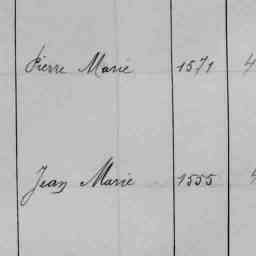 Pierre Marie 1571 4
Jean Marie 1555